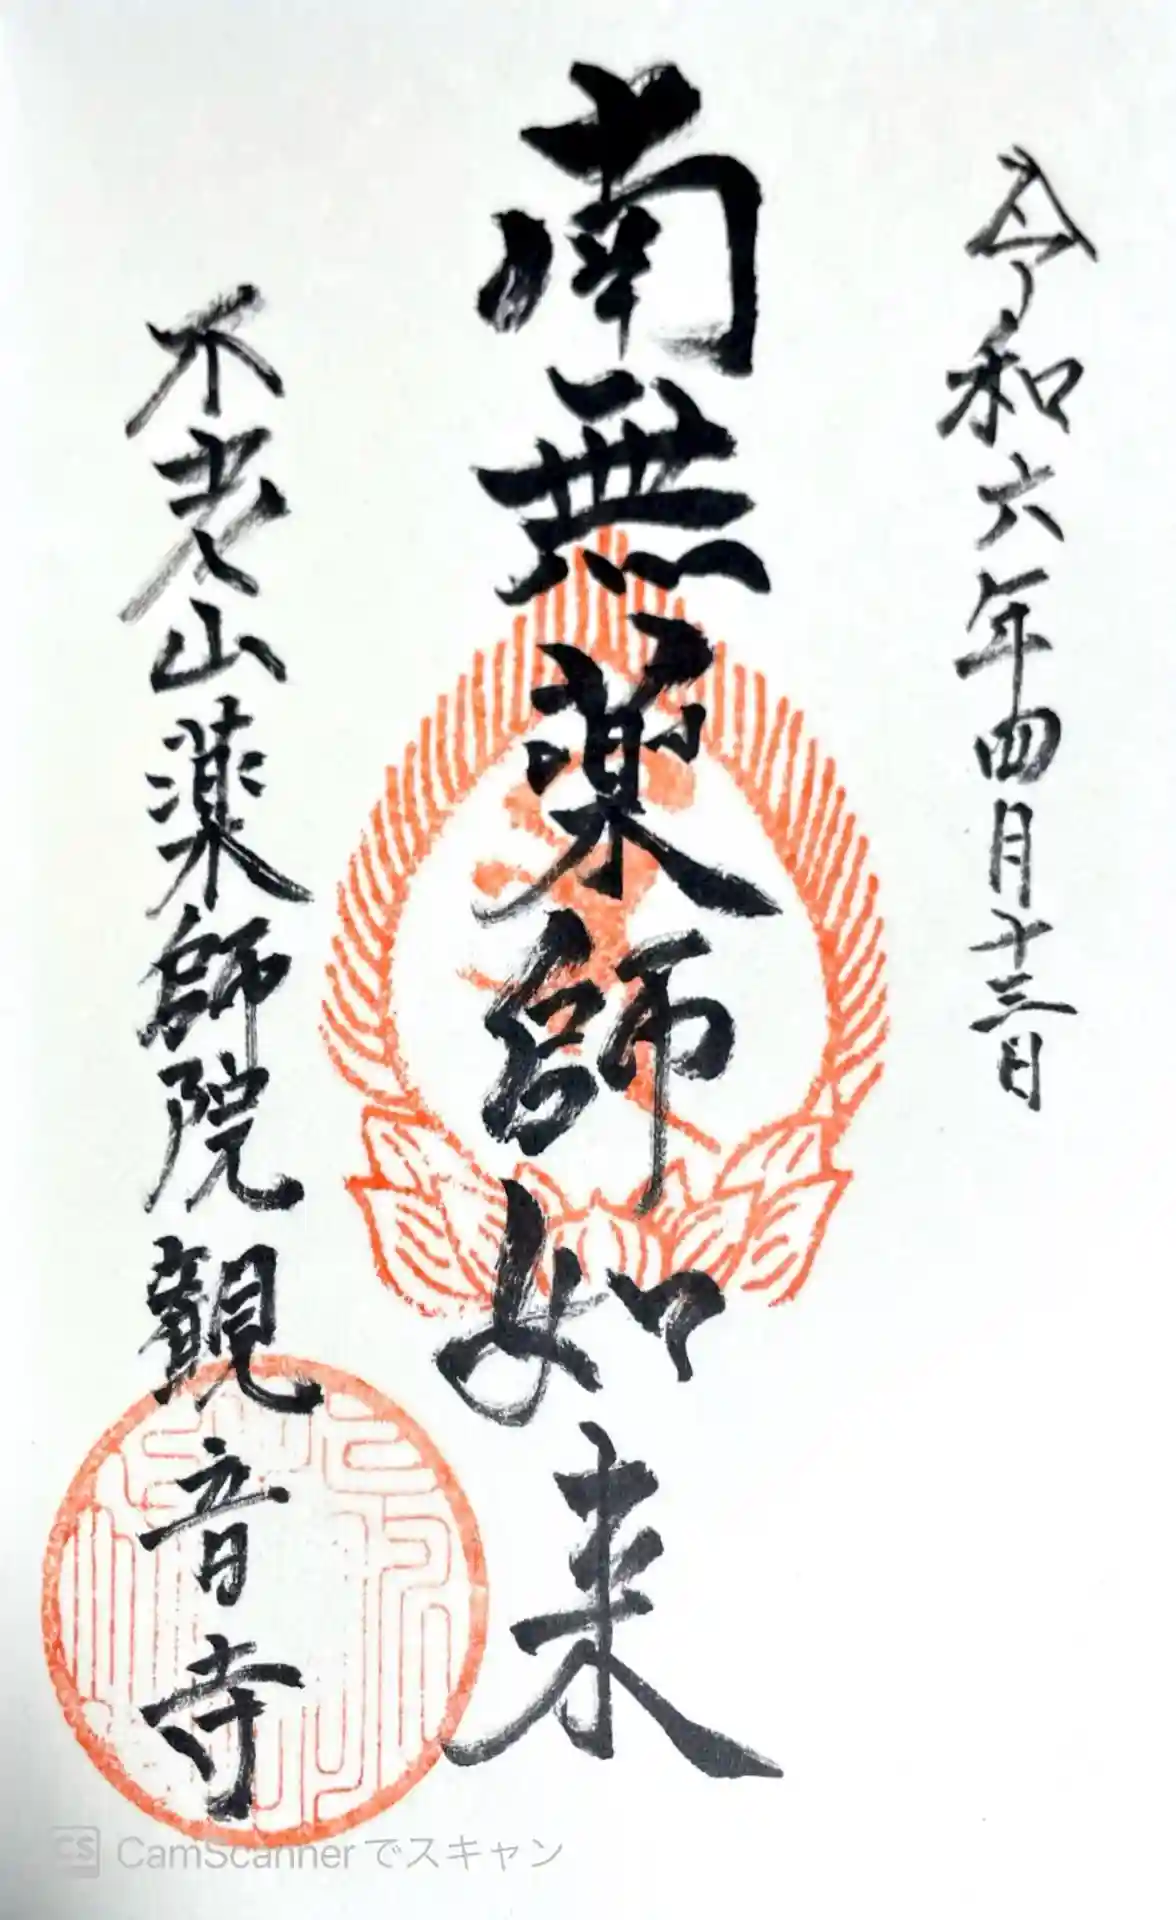 令和六年四月十三日
南無薬師如来
不老山薬師院観音寺
CS CamScannerでスキャン